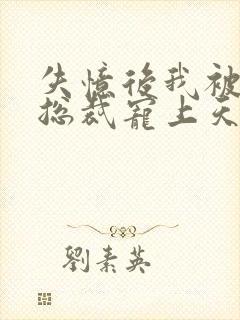 失憶後我被
總裁寵上天
劉素英